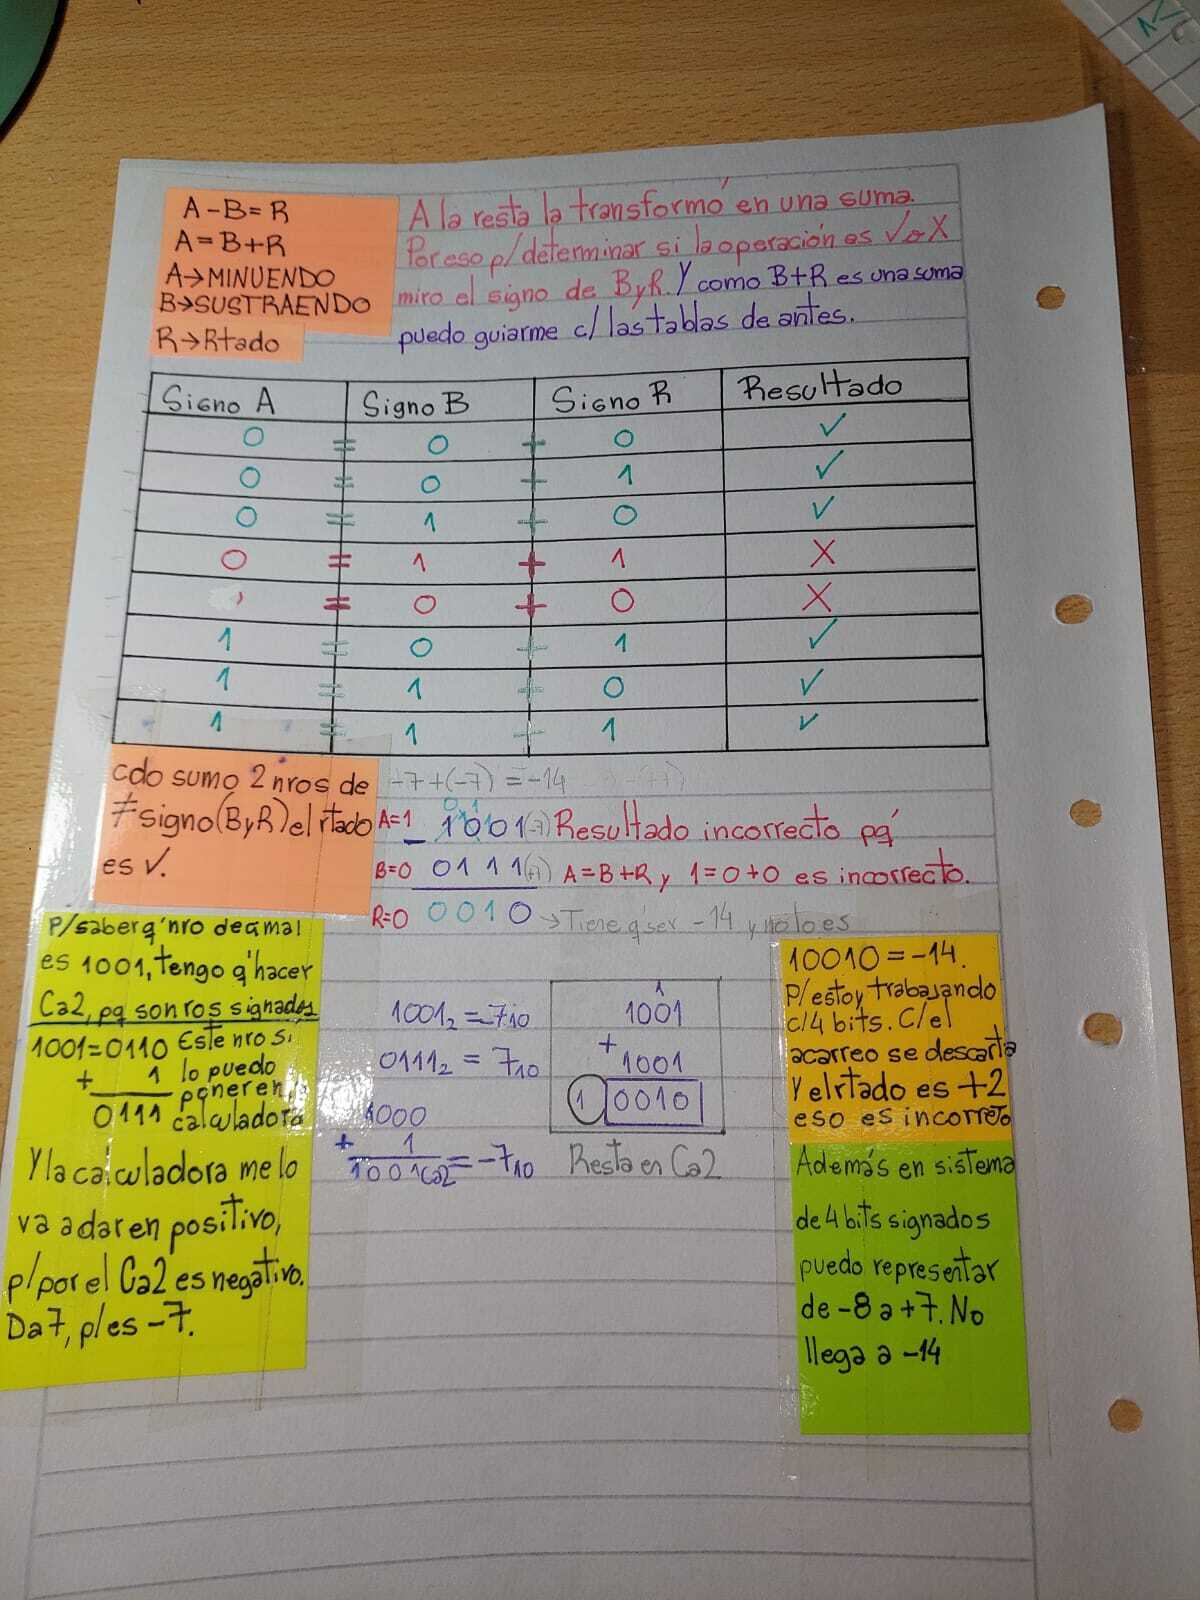 A - B = R
A = B + R
A→MINUENDO
B→SUSTRAENDO
R→Rtado
A la resta la transformó en una suma.
Por eso p/determinar si la operación es ✓ o X
miro el signo de B y R. Y como B+R es una suma
puedo guiarme c/ las tablas de antes.
Signo A Signo B Signo R Resultado
0 = 0 + 0 ✓
0 = 0 + 1 ✓
0 = 1 + 0 ✓
0 = 1 + 1 X
= 0 + 0 X
1 = 0 + 1 ✓
1 = 1 + 0 ✓
1 = 1 + 1 ✓
cdo sumo 2 nros de
≠ signo (B y R) el rtado
es ✓.
-7+(-7) = -14
0 1
A=1 - 1001(-7) Resultado incorrecto pq'
B=0 0111(+7) A=B+R y 1=0+0 es incorrecto.
R=0 0010 → Tiene q'ser -14 y no lo es
P/saber q'nro decimal
es 1001, tengo q'hacer
Ca2, pq son ros signados
1001=0110 Este nro sí
+ 1 lo puedo
0111 poner en
calculadora
Y la calculadora me lo
va a dar en positivo,
p/por el Ca2 es negativo.
Da 7, p/es -7.
1001₂ = -7₁₀
0111₂ = 7₁₀
1000
+ 1
1001Ca2 = -7₁₀
1
1001
+
1001
1 0010
Resta en Ca2
10010 = -14.
P/estoy trabajando
c/4 bits. C/el
acarreo se descarta
Y el rtado es +2
eso es incorreto
Además en sistema
de 4 bits signados
puedo representar
de -8 a +7. No
llega a -14